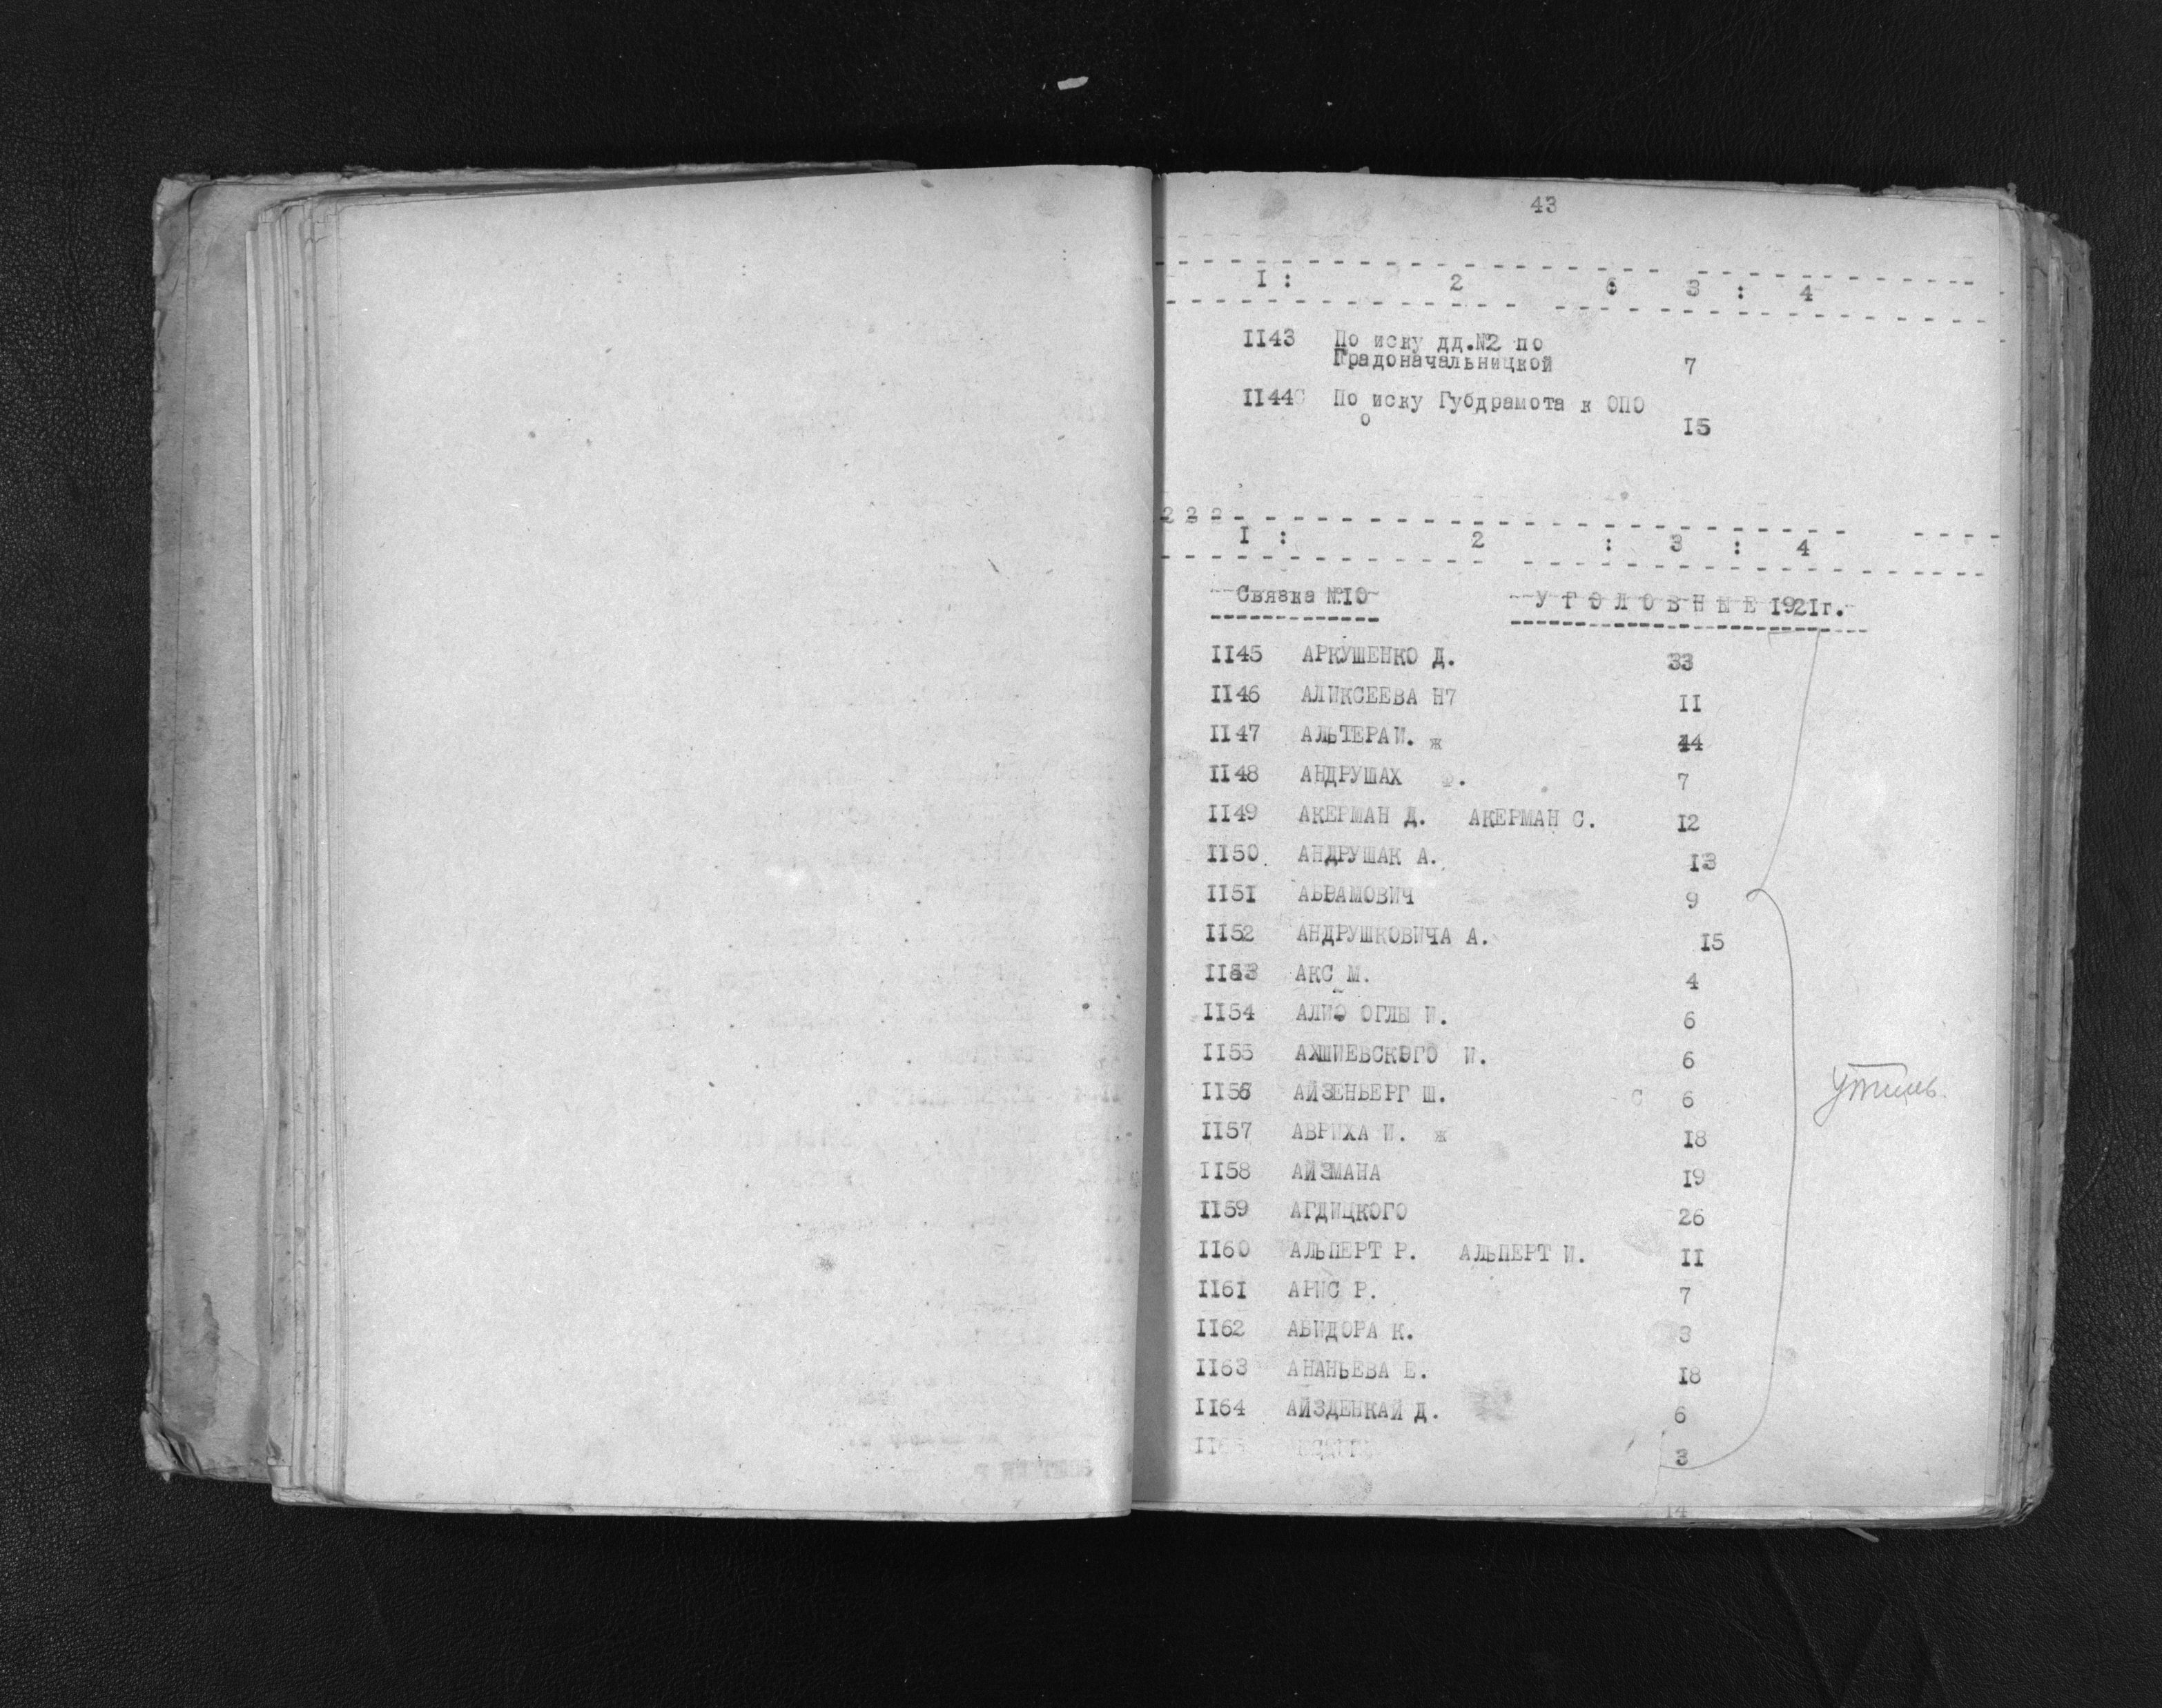 43
I : 2 : 3 : 4
II43 По иску дд.№2 по
Градоначальницкой 7
II44 По иску Губдрамота к ОПО
о I5
222
I : 2 : 3 : 4
Связка №IO УГОЛОВНЫЕ I92Iг.
II45 АРКУШЕНКО Д. 33
II46 АЛИКСЕЕВА Н7 II
II47 АЛЬТЕРА И. ж 44
II48 АНДРУШАХ Ф. 7
II49 АКЕРМАН Д. АКЕРМАН С. I2
II50 АНДРУШАК А. I3
II5I АБРАМОВИЧ 9
II52 АНДРУШКОВИЧА А. I5
II53 АКС М. 4
II54 АЛИО ОГЛЫ И. 6
II55 И. 6
II56 АЙЗЕНБЕРГ Ш. С 6
II57 АВРИХА И. ж I8
II58 АЙЗМАНА I9
II59 АГДИЦКОГО 26
II60 АЛЬПЕРТ Р. АЛЬПЕРТ И. II
II6I АРИС Р. 7
II62 АВИДОРА К. 3
II63 АНАНЬЕВА Е. I8
II64 АЙЗДЕНКАЙ Д. 6
3
I4
утиль